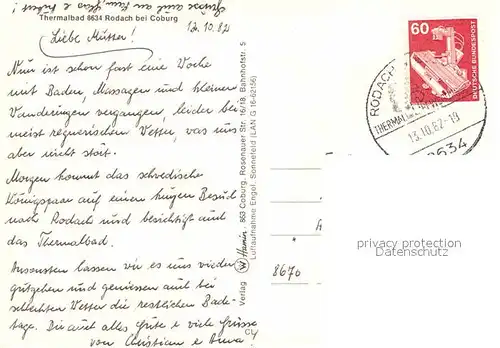 Grüsse auch an
Thermalbad 8634 Rodach bei Coburg
12.10.82
Liebe Mutter!
Nun ist schon fast eine Woche
mit Baden, Massagen und kleinen
Wanderungen vergangen, leider bei
meist regnerischem Wetter, was uns
aber nicht stört.
Morgen kommt das schwedische
Königspaar auf einen kurzen Besuch
nach Rodach und besichtigt auch
das Thermalbad.
Ansonsten lassen wir es uns wieder
gutgehen und geniessen auch bei
schlechtem Wetter die restlichen Bade-
tage. Dir auch alles Gute & viele Grüsse
von Christian &
Verlag Hamin - 863 Coburg, Rosenauer Str. 16/18, Bahnhofstr. 5
Luftaufnahme Engel, Sonnefeld (LAN G 16-62156)
60
DEUTSCHE BUNDESPOST
RODACH
THERMAL
13.10.82-19
8634
8670
privacy protection
Datenschutz